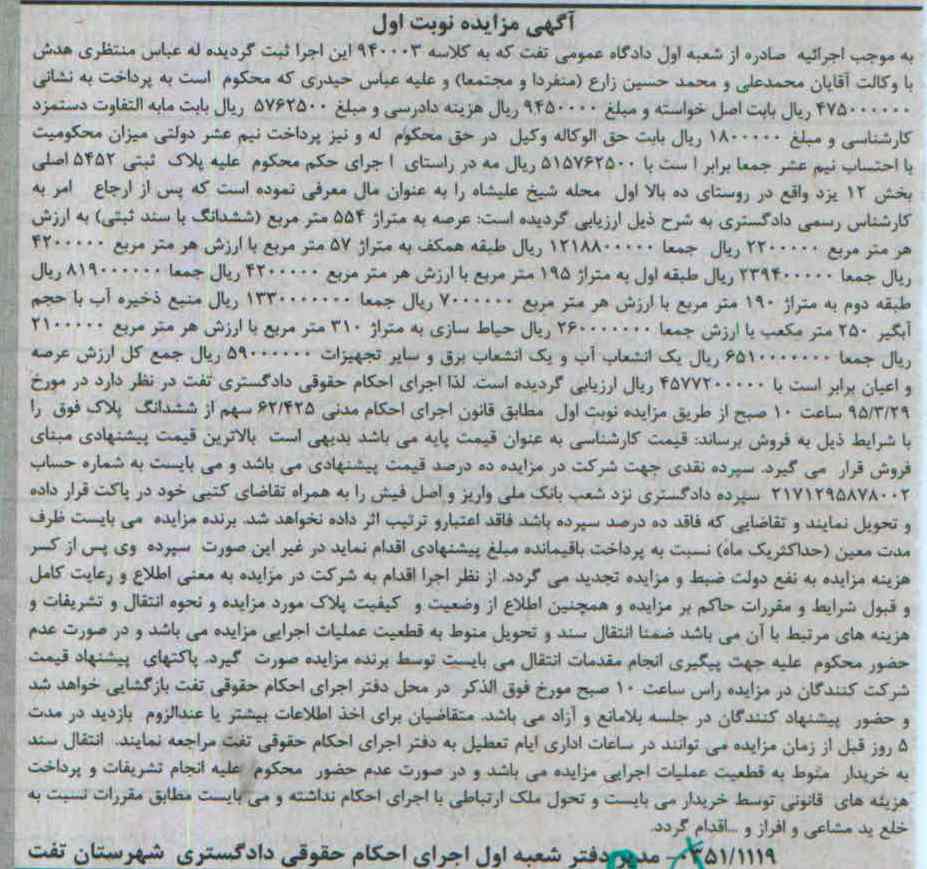 آگهی مزایده نوبت اول
به موجب اجرائیه صادره از شعبه اول دادگاه عمومی تفت که به کلاسه ۹۴۰۰۰۳ این اجرا ثبت گردیده له عباس منتظری هدش
با وکالت آقایان محمدعلی و محمد حسین زارع (منفردا و مجتمعا) و علیه عباس حیدری که محکوم است به پرداخت به نشانی
۴۷۵۰۰۰۰۰۰ ریال بابت اصل خواسته و مبلغ ۹۴۵۰۰۰۰ ریال هزینه دادرسی و مبلغ ۵۷۶۲۵۰۰ ریال بابت مابه التفاوت دستمزد
کارشناسی و مبلغ ۱۸۰۰۰۰۰ ریال بابت حق الوکاله وکیل در حق محکوم له و نیز پرداخت نیم عشر دولتی میزان محکومیت
با احتساب نیم عشر جمعا برابر ا ست با ۵۱۵۷۶۲۵۰۰ ریال مه در راستای ا جرای حکم محکوم علیه پلاک ثبتی ۵۴۵۲ اصلی
بخش ۱۲ یزد واقع در روستای ده بالا اول محله شیخ علیشاه را به عنوان مال معرفی نموده است که پس از ارجاع امر به
کارشناس رسمی دادگستری به شرح ذیل ارزیابی گردیده است: عرصه به متراژ ۵۵۴ متر مربع (ششدانگ با سند ثبتی) به ارزش
هر متر مربع ۲۲۰۰۰۰۰ ریال جمعا ۱۲۱۸۸۰۰۰۰۰ ریال طبقه همکف به متراژ ۵۷ متر مربع با ارزش هر متر مربع ۴۲۰۰۰۰۰
ریال جمعا ۲۳۹۴۰۰۰۰۰ ریال طبقه اول به متراژ ۱۹۵ متر مربع با ارزش هر متر مربع ۴۲۰۰۰۰۰ ریال جمعا ۸۱۹۰۰۰۰۰۰ ریال
طبقه دوم به متراژ ۱۹۰ متر مربع با ارزش هر متر مربع ۷۰۰۰۰۰۰ ریال جمعا ۱۳۳۰۰۰۰۰۰۰ ریال منبع ذخیره آب با حجم
آبگیر ۲۵۰ متر مکعب با ارزش جمعا ۲۶۰۰۰۰۰۰۰ ریال حیاط سازی به متراژ ۳۱۰ متر مربع با ارزش هر متر مربع ۲۱۰۰۰۰۰
ریال جمعا ۶۵۱۰۰۰۰۰۰ ریال یک انشعاب آب و یک انشعاب برق و سایر تجهیزات ۵۹۰۰۰۰۰۰ ریال جمع کل ارزش عرصه
و اعیان برابر است با ۴۵۷۷۲۰۰۰۰۰ ریال ارزیابی گردیده است. لذا اجرای احکام حقوقی دادگستری تفت در نظر دارد در مورخ
۹۵/۳/۲۹ ساعت ۱۰ صبح از طریق مزایده نوبت اول مطابق قانون اجرای احکام مدنی ۶۲/۴۲۵ سهم از ششدانگ پلاک فوق را
با شرایط ذیل به فروش برساند: قیمت کارشناسی به عنوان قیمت پایه می باشد بدیهی است بالاترین قیمت پیشنهادی مبنای
فروش قرار می گیرد. سپرده نقدی جهت شرکت در مزایده ده درصد قیمت پیشنهادی می باشد و می بایست به شماره حساب
۲۱۷۱۲۹۵۸۷۸۰۰۲ سپرده دادگستری نزد شعب بانک ملی واریز و اصل فیش را به همراه تقاضای کتبی خود در پاکت قرار داده
و تحویل نمایند و تقاضایی که فاقد ده درصد سپرده باشد فاقد اعتبارو ترتیب اثر داده نخواهد شد. برنده مزایده می بایست ظرف
مدت معین (حداکثریک ماه) نسبت به پرداخت باقیمانده مبلغ پیشنهادی اقدام نماید در غیر این صورت سپرده وی پس از کسر
هزینه مزایده به نفع دولت ضبط و مزایده تجدید می گردد. از نظر اجرا اقدام به شرکت در مزایده به معنی اطلاع و رعایت کامل
و قبول شرایط و مقررات حاکم بر مزایده و همچنین اطلاع از وضعیت و کیفیت پلاک مورد مزایده و نحوه انتقال و تشریفات و
هزینه های مرتبط با آن می باشد ضمنا انتقال سند و تحویل منوط به قطعیت عملیات اجرایی مزایده می باشد و در صورت عدم
حضور محکوم علیه جهت پیگیری انجام مقدمات انتقال می بایست توسط برنده مزایده صورت گیرد. پاکتهای پیشنهاد قیمت
شرکت کنندگان در مزایده راس ساعت ۱۰ صبح مورخ فوق الذکر در محل دفتر اجرای احکام حقوقی تفت بازگشایی خواهد شد
و حضور پیشنهاد کنندگان در جلسه بلامانع و آزاد می باشد. متقاضیان برای اخذ اطلاعات بیشتر یا عندالزوم بازدید در مدت
۵ روز قبل از زمان مزایده می توانند در ساعات اداری ایام تعطیل به دفتر اجرای احکام حقوقی تفت مراجعه نمایند. انتقال سند
به خریدار منوط به قطعیت عملیات اجرایی مزایده می باشد و در صورت عدم حضور محکوم علیه انجام تشریفات و پرداخت
هزینه های قانونی توسط خریدار می بایست و تحول ملک ارتباطی با اجرای احکام نداشته و می بایست مطابق مقررات نسبت به
خلع ید مشاعی و افراز و ...اقدام گردد.
۰۳۵۱/۱۱۱۹- مدیر دفتر شعبه اول اجرای احکام حقوقی دادگستری شهرستان تفت